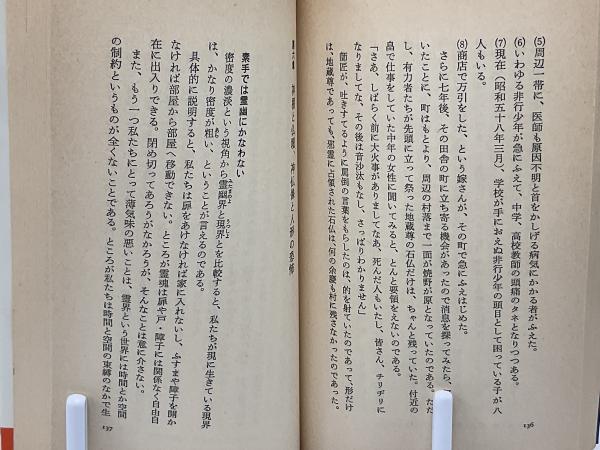 (5)周辺一帯に、医師も原因不明と首をかしげる病気にかかる者がふえた。
(6)いわゆる非行少年が急にふえて、中学、高校教師の頭痛のタネとなりつつある。
(7)現在(昭和五十八年三月)、学校が手におえぬ非行少年の頭目として困っている子が八
人もいる。
(8)商店で万引をした、という嫁さんが、その町で急にふえはじめた。
さらに七年後、その田舎の町に立ち寄る機会があったので消息を探ってみたら、
いたことに、町はもとより、周辺の村落まで一面が焼野が原となっていたのである。ただ
し、有力者たちが先頭に立って祭った地蔵尊の石仏だけは、ちゃんと残っていた。付近の
畠で仕事をしていた中年の女性に聞いてみると、とんと要領をえないのである。
「さあ、しばらく前に大火事がありましてなあ、死んだ人もいたし、皆さん、チリヂリに
なりましてな、その後は音沙汰もなし、さっぱりわかりません」
師匠が、吐きすてるように罵倒の言葉をもらしたのは、的を射ていたのであって、形だけ
は、地蔵尊であっても、邪霊に占領された石仏は、何の余慶も村に残さなかったのであった。
136
素手では霊幽にかなわない
密度の濃淡という視角から霊幽界と現界とを比較すると、私たちが現に生きている現界
は、かなり密度が粗い、ということが言えるのである。
具体的に説明すると、私たちは扉をあけなければ家に入れないし、ふすまや障子を開か
なければ部屋から部屋へ移動できない。ところが霊魂は扉や戸・障子には関係なく自由自
在に出入りできる。閉め切ってあろうがなかろうが、そんなことは意に介さない。
また、もう一つ私たちにとって薄気味の悪いことは、霊界という世界には時間とか空間
の制約というものが全くないことである。ところが私たちは時間と空間の束縛のなかで生
137